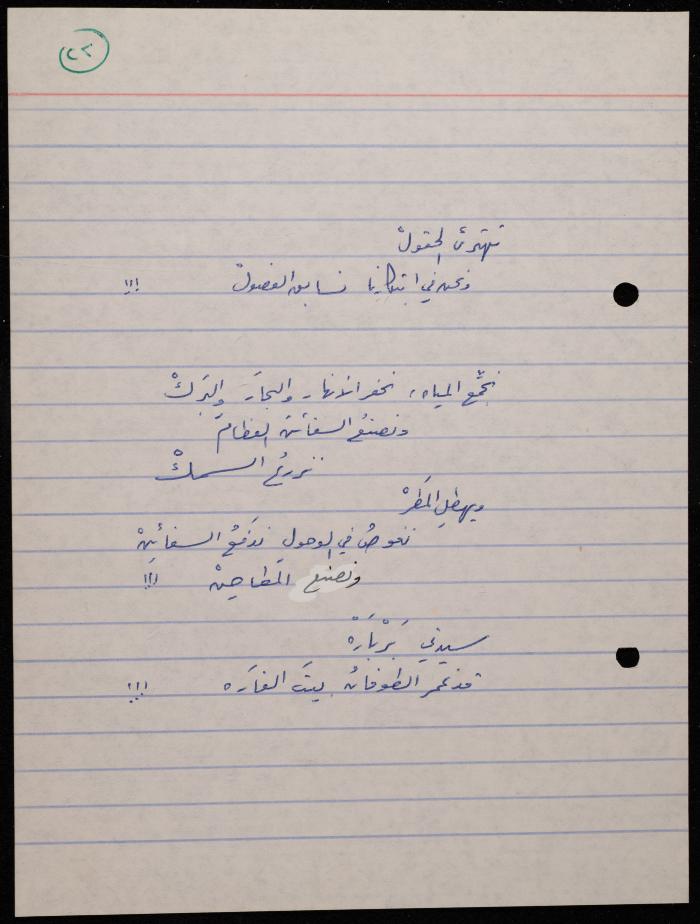 ٢٢
تهترئ الحقولْ
ونحن في ابتكارنا نسابق الفصولْ !!!
نجمّع المياه، نحفر الانهار والبحارَ والبَركْ
ونصنعُ السفائنَ العظامَ
نزرعُ السمكْ
ويهطل المَطَرْ
نغوصُ في الوحولِ ندفعُ السفائِنْ
ونصنع المطاحِنْ !!!
سيدتي بَرْبَارَهْ
قد غمر الطوفانُ بيتَ الفارَه !!!